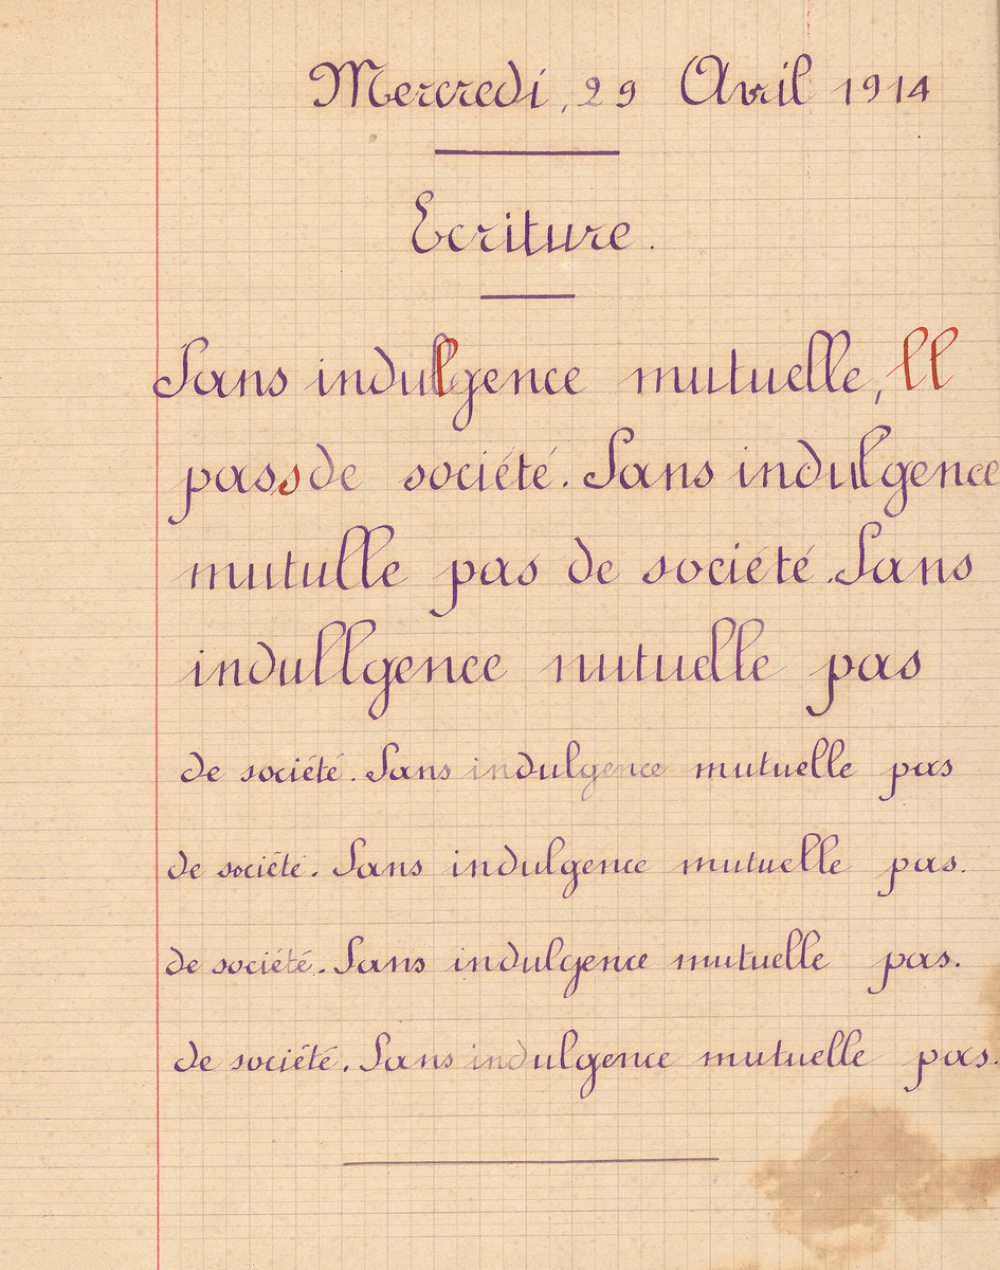 Mercredi, 29 Avril 1914
Ecriture.
Sans indulgence mutuelle, ll
pas s de société. Sans indulgence
mutulle pas de société. Sans
indullgence nutuelle pas
de société. Sans indulgence mutuelle pas
de société. Sans indulgence mutuelle pas.
de société. Sans indulgence mutuelle pas.
de société. Sans indulgence mutuelle pas.